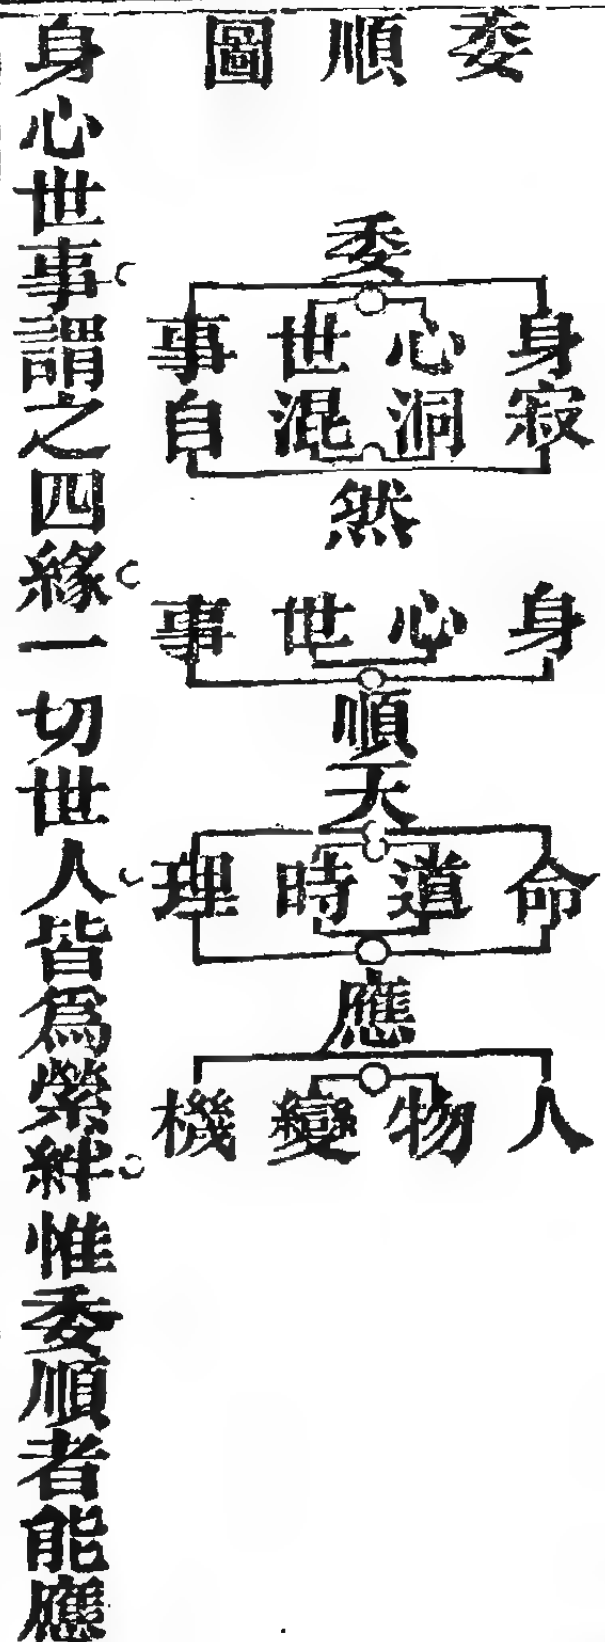 委順圖
委
身心世事
寂洞混自
然
身心世事
順
天
命道時理
應
人物變機
身心世事謂之四緣一切世人皆為縈絆惟委順者能應